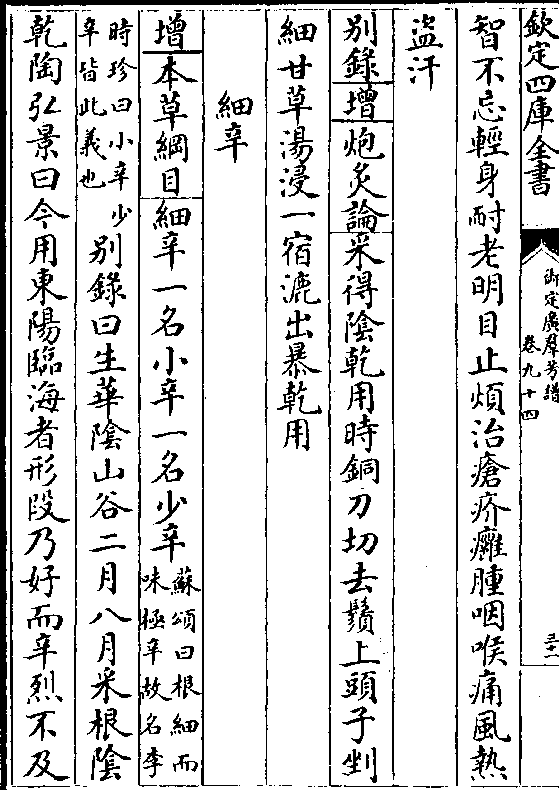 欽定四庫全書
御定廣羣芳譜
卷九十四
三十一
智不忘輕身耐老明目止煩治瘡疥癰腫咽喉痛風熱
盜汗
別錄增炮炙論采得陰乾用時銅刀切去鬚上頭子剉
細甘草湯浸一宿漉出暴乾用
細辛
增本草綱目細辛一名小辛一名少辛蘇頌曰根細而
味極辛故名李
時珍曰小辛少
辛皆此義也別錄曰生華陰山谷二月八月采根陰
乾陶弘景曰今用東陽臨海者形段乃好而辛烈不及